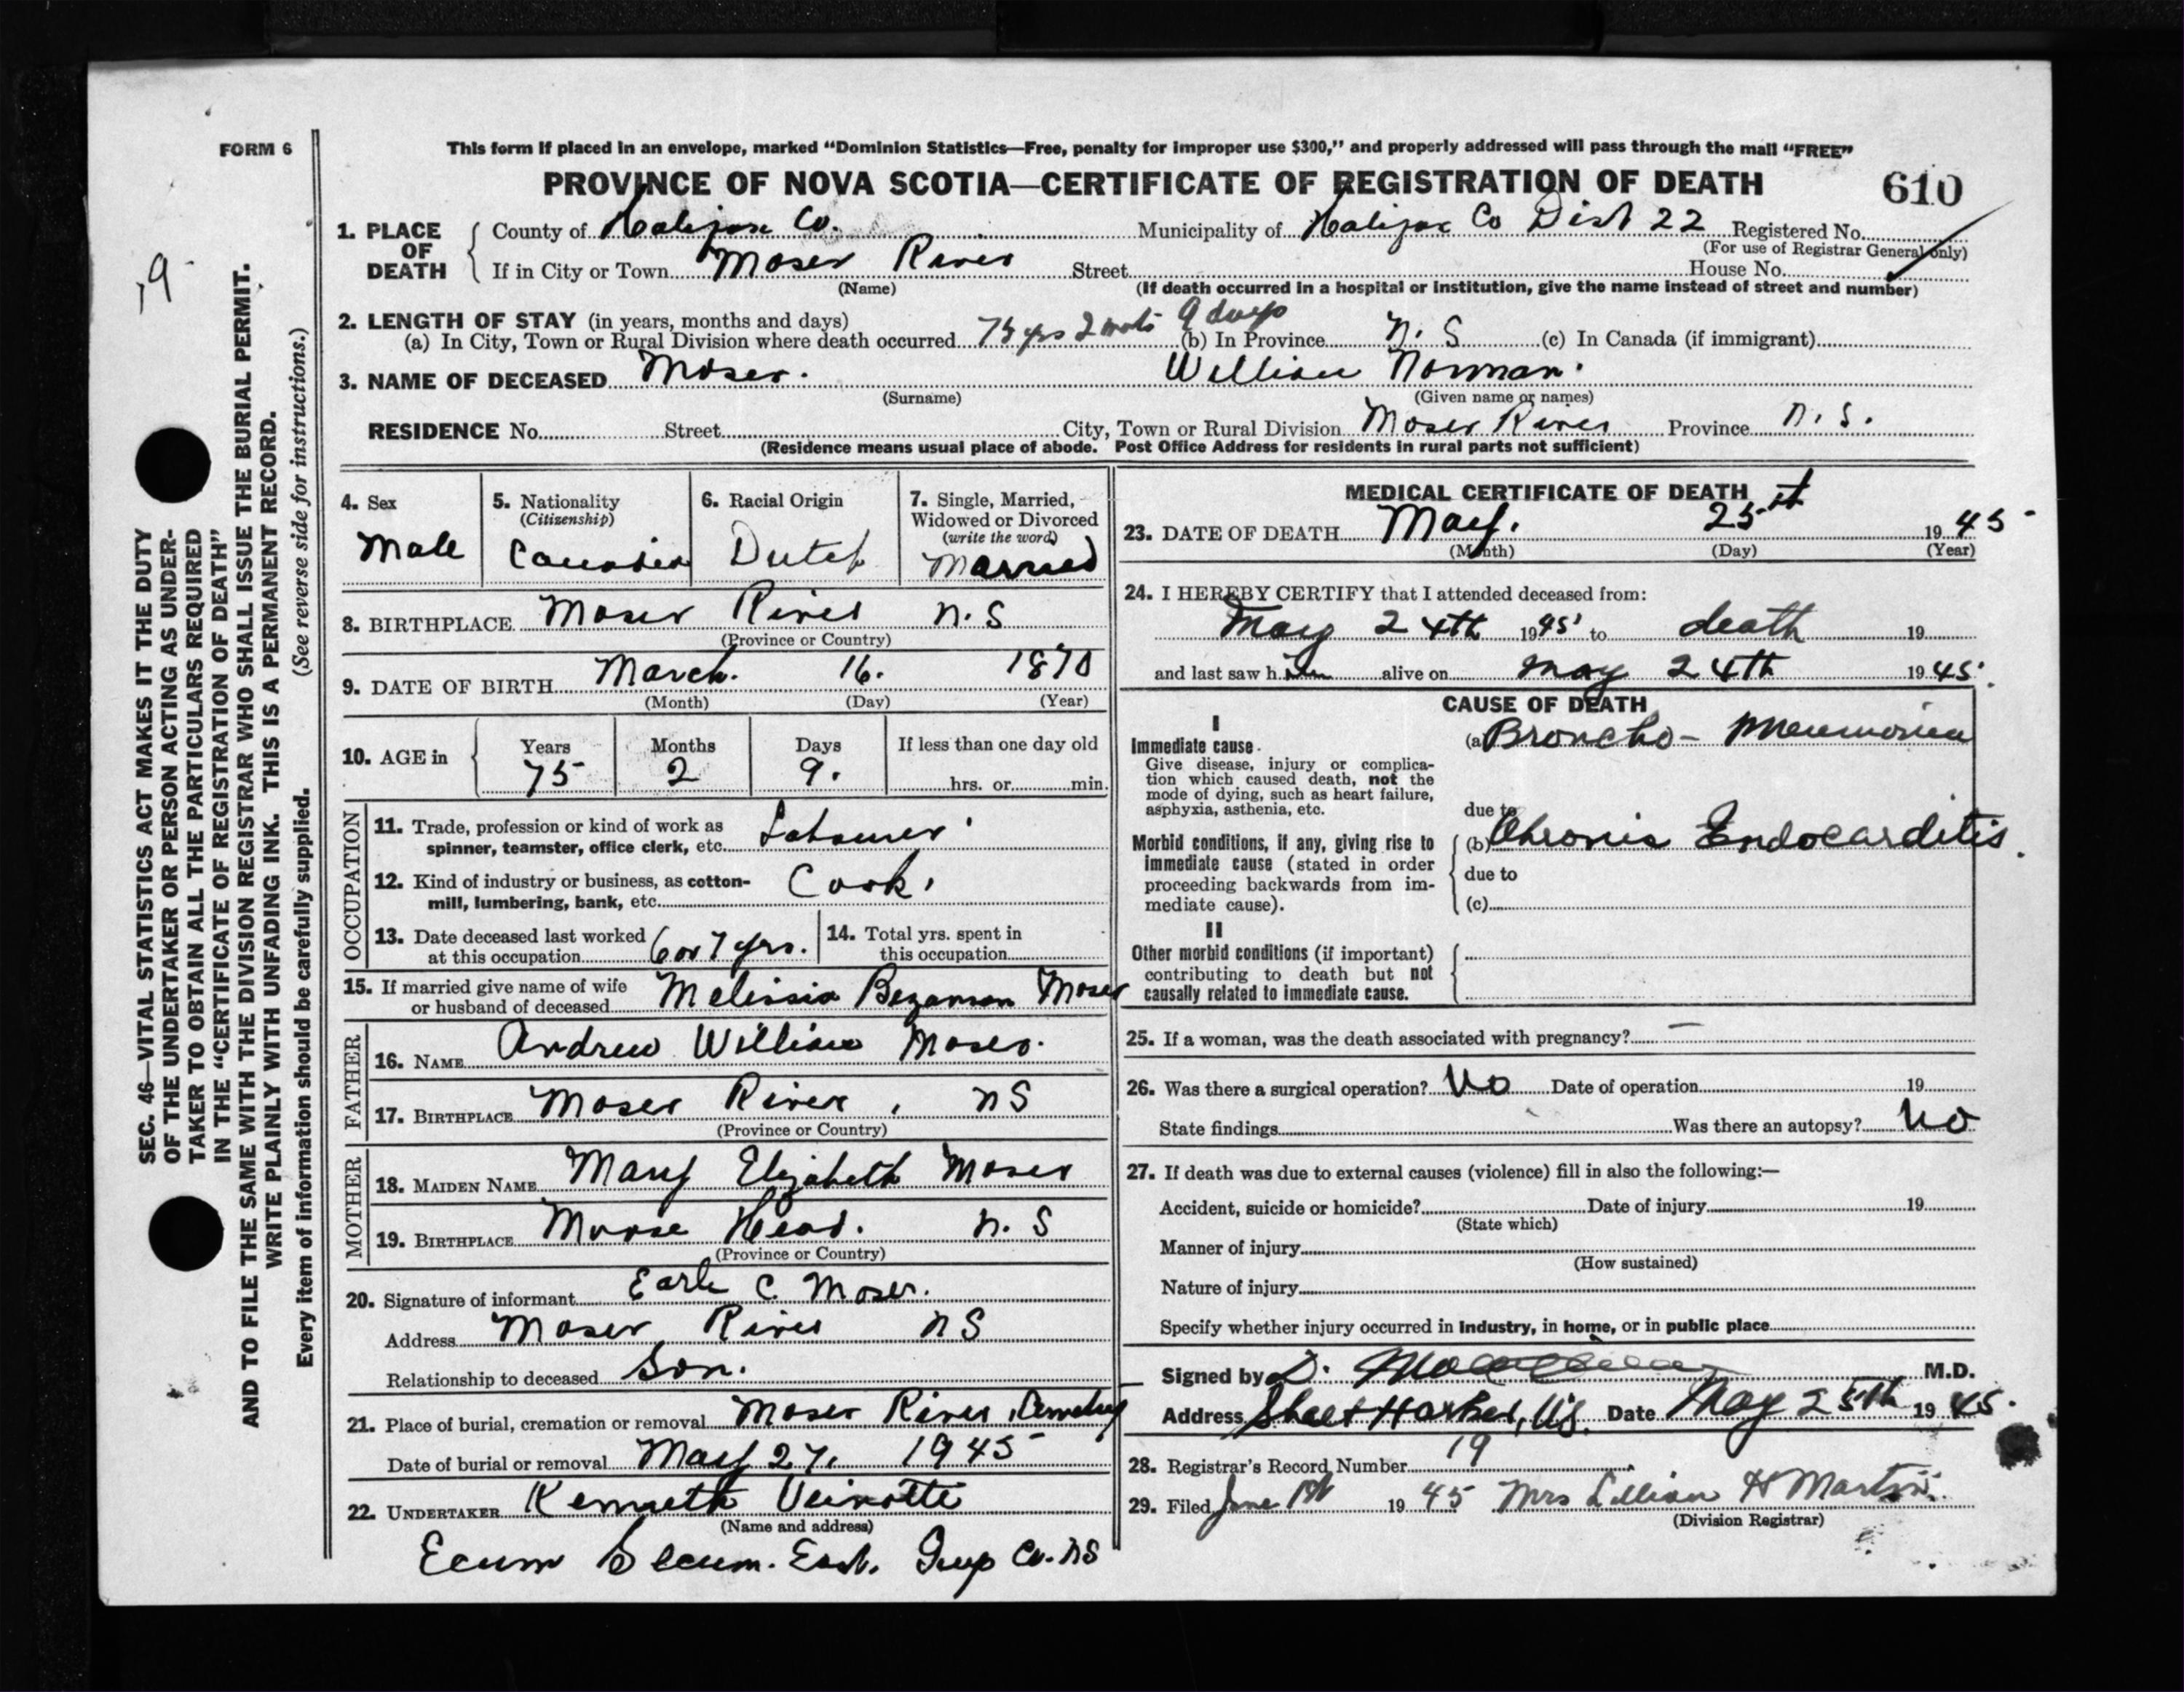 FORM 6
This form if placed in an envelope, marked “Dominion Statistics—Free, penalty for improper use $300,” and properly addressed will pass through the mail “FREE”
PROVINCE OF NOVA SCOTIA—CERTIFICATE OF REGISTRATION OF DEATH 610
1. PLACE OF DEATH
County of Halifax Co. Municipality of Halifax Co Dist 22 Registered No.
(For use of Registrar General only)
If in City or Town Moser River Street House No.
(Name) (If death occurred in a hospital or institution, give the name instead of street and number)
2. LENGTH OF STAY (in years, months and days)
(a) In City, Town or Rural Division where death occurred 75 yrs 2 mots 9 days (b) In Province N. S (c) In Canada (if immigrant)
3. NAME OF DECEASED Moser. William Norman.
(Surname) (Given name or names)
RESIDENCE No. Street City, Town or Rural Division Moser River Province N. S.
(Residence means usual place of abode. Post Office Address for residents in rural parts not sufficient)
4. Sex
Male
5. Nationality
(Citizenship)
Canadian
6. Racial Origin
Dutch
7. Single, Married,
Widowed or Divorced
(write the word)
Married
8. BIRTHPLACE Moser River N. S
(Province or Country)
9. DATE OF BIRTH March. 16. 1870
(Month) (Day) (Year)
10. AGE in
Years Months Days If less than one day old
75 2 9. hrs. or min.
OCCUPATION
11. Trade, profession or kind of work as
spinner, teamster, office clerk, etc. Labourer
12. Kind of industry or business, as cotton-
mill, lumbering, bank, etc. Cook.
13. Date deceased last worked
at this occupation 6 or 7 yrs.
14. Total yrs. spent in
this occupation
15. If married give name of wife
or husband of deceased Melissia Bezanson Moser
FATHER
16. NAME Andrew William Moser.
17. BIRTHPLACE Moser River, NS
(Province or Country)
MOTHER
18. MAIDEN NAME Mary Elizabeth Moser
19. BIRTHPLACE Moose Head. N. S
(Province or Country)
20. Signature of informant Earle C. Moser.
Address Moser River NS
Relationship to deceased Son.
21. Place of burial, cremation or removal Moser River Cemetery
Date of burial or removal May 27, 1945
22. UNDERTAKER Kenneth Veinotte
(Name and address)
Ecum Secum. East. Guy Co. NS
MEDICAL CERTIFICATE OF DEATH
23. DATE OF DEATH May. 25th 1945
(Month) (Day) (Year)
24. I HEREBY CERTIFY that I attended deceased from:
May 24th 1945 to death 19
and last saw him alive on May 24th 1945.
CAUSE OF DEATH
I
Immediate cause.
Give disease, injury or complica-
tion which caused death, not the
mode of dying, such as heart failure,
asphyxia, asthenia, etc.
(a) Broncho-Pneumonia
due to
Morbid conditions, if any, giving rise to
immediate cause (stated in order
proceeding backwards from im-
mediate cause).
(b) Chronic Endocarditis.
due to
(c)
II
Other morbid conditions (if important)
contributing to death but not
causally related to immediate cause.
25. If a woman, was the death associated with pregnancy? —
26. Was there a surgical operation? No Date of operation 19
State findings Was there an autopsy? No
27. If death was due to external causes (violence) fill in also the following:—
Accident, suicide or homicide? Date of injury 19
(State which)
Manner of injury
(How sustained)
Nature of injury
Specify whether injury occurred in industry, in home, or in public place
Signed by D. M.D.
Address Sheet Harbor, N.S. Date May 25th 1945.
28. Registrar's Record Number 19
29. Filed June 1st 1945 Mrs Lillian H Martin.
(Division Registrar)
19
SEC. 46—VITAL STATISTICS ACT MAKES IT THE DUTY
OF THE UNDERTAKER OR PERSON ACTING AS UNDER-
TAKER TO OBTAIN ALL THE PARTICULARS REQUIRED
IN THE “CERTIFICATE OF REGISTRATION OF DEATH”
AND TO FILE THE SAME WITH THE DIVISION REGISTRAR WHO SHALL ISSUE THE BURIAL PERMIT.
WRITE PLAINLY WITH UNFADING INK. THIS IS A PERMANENT RECORD.
Every item of information should be carefully supplied. (See reverse side for instructions.)